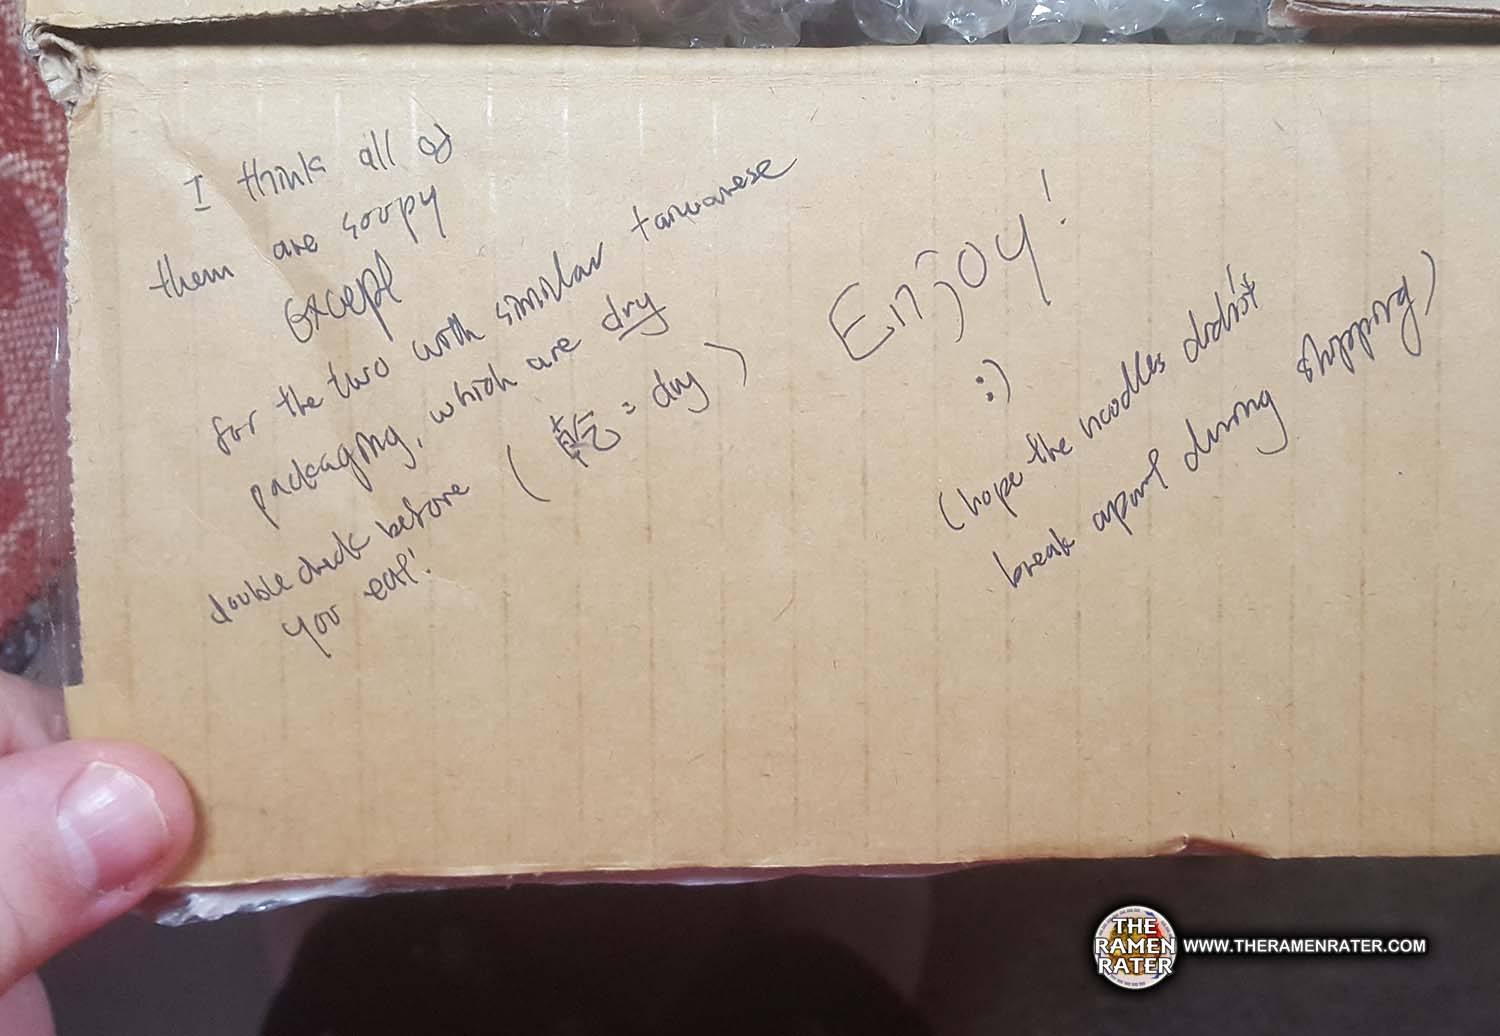 I think all of
them are soupy
except
for the two with similar taiwanese
packaging, which are dry
double check before ( 乾 = dry )
you eat!
Enjoy!
:)
(hope the noodles didn't
break apart during shipping)
THE
RAMEN
RATER
WWW.THERAMENRATER.COM